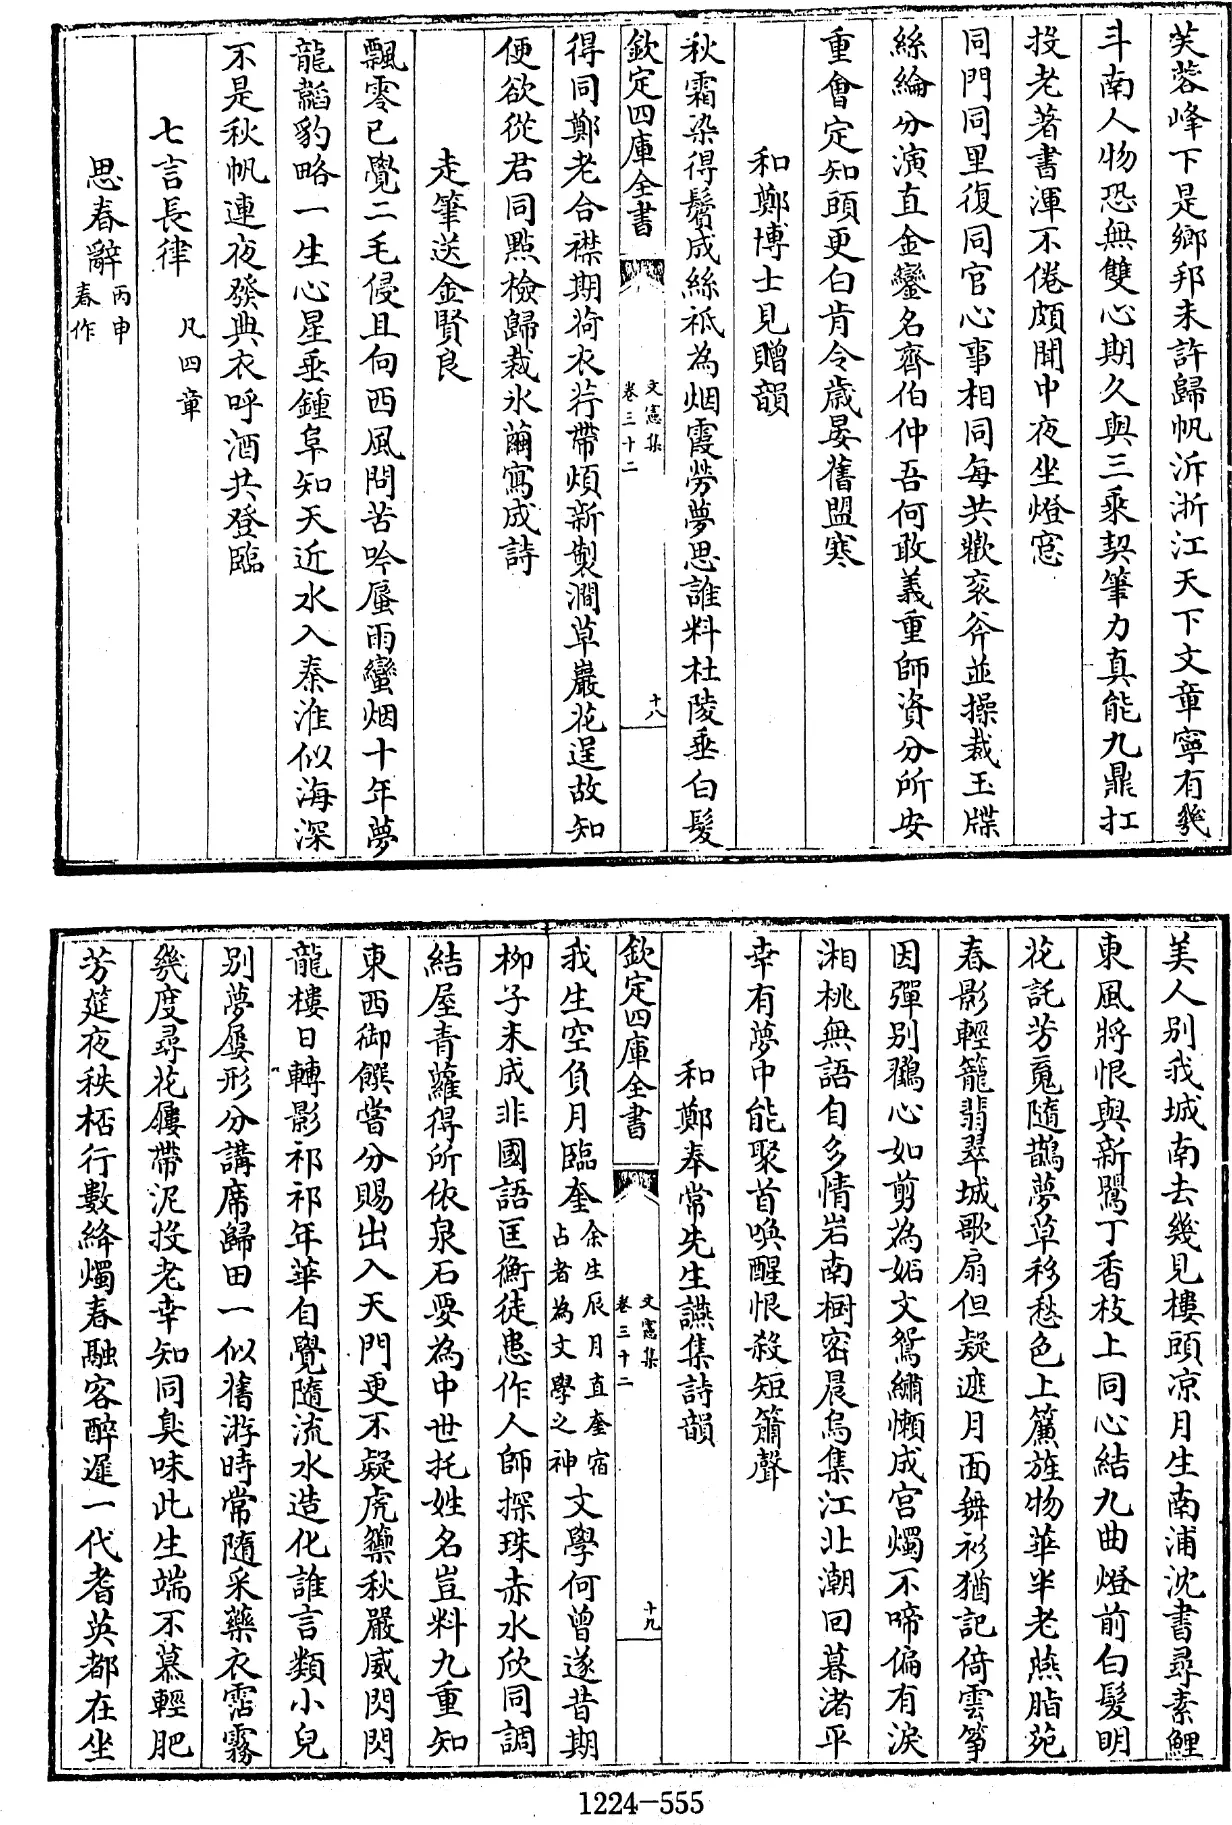 芙蓉峰下是鄉邦未許歸帆泝浙江天下文章寧有幾
斗南人物恐無雙心期久與三乘契筆力真能九鼎扛
投老著書渾不倦頗聞中夜坐燈窓
同門同里復同官心事相同每共歡衮斧並操裁玉牒
絲綸分演直金鑾名齊伯仲吾何敢義重師資分所安
重會定知頭更白肯令歳晏舊盟寒
和鄭博士見贈韻
秋霜染得鬢成絲祇為烟霞勞夢思誰料杜陵垂白髪
欽定四庫全書
文憲集
卷三十二
十八
得同鄭老合襟期荷衣荇帶煩新製澗草巖花逞故知
便欲從君同㸃檢歸裁氷繭寫成詩
走筆送金賢良
飄零已覺二毛侵且向西風問苦吟蜃雨蠻烟十年夢
龍韜豹略一生心星垂鍾阜知天近水入秦淮似海深
不是秋帆連夜發典衣呼酒共登臨
七言長律 凡四章
思春辭 丙申春作
美人别我城南去幾見樓頭凉月生南浦沈書尋素鯉
東風將恨與新鶯丁香枝上同心結九曲燈前白髮明
花託芳䰟隨鵲夢草移愁色上簾旌物華半老臙脂苑
春影輕籠翡翠城歌扇但疑遮月面舞衫猶記倚雲筝
因彈别鵠心如剪為妬文鴛繡懶成宫燭不啼偏有淚
湘桃無語自多情岩南樹宻晨烏集江北潮回暮渚平
幸有夢中能聚首喚醒恨殺短簫聲
和鄭奉常先生讌集詩韻
欽定四庫全書
文憲集
卷三十二
十九
我生空負月臨奎余生辰月直奎宿占者為文學之神文學何曾遂昔期
柳子未成非國語匡衡徒患作人師探珠赤水欣同調
結屋青蘿得所依泉石要為中世托姓名豈料九重知
東西御饌嘗分賜出入天門更不疑虎籞秋嚴威閃閃
龍樓日轉影祁祁年華自覺隨流水造化誰言類小兒
别夢屢形分講席歸田一似舊游時常隨采藥衣霑霧
幾度尋花屨帶泥投老幸知同臭味此生端不慕輕肥
芳筵夜秩桮行數絳燭春融客醉遲一代耆英都在坐
1224-555